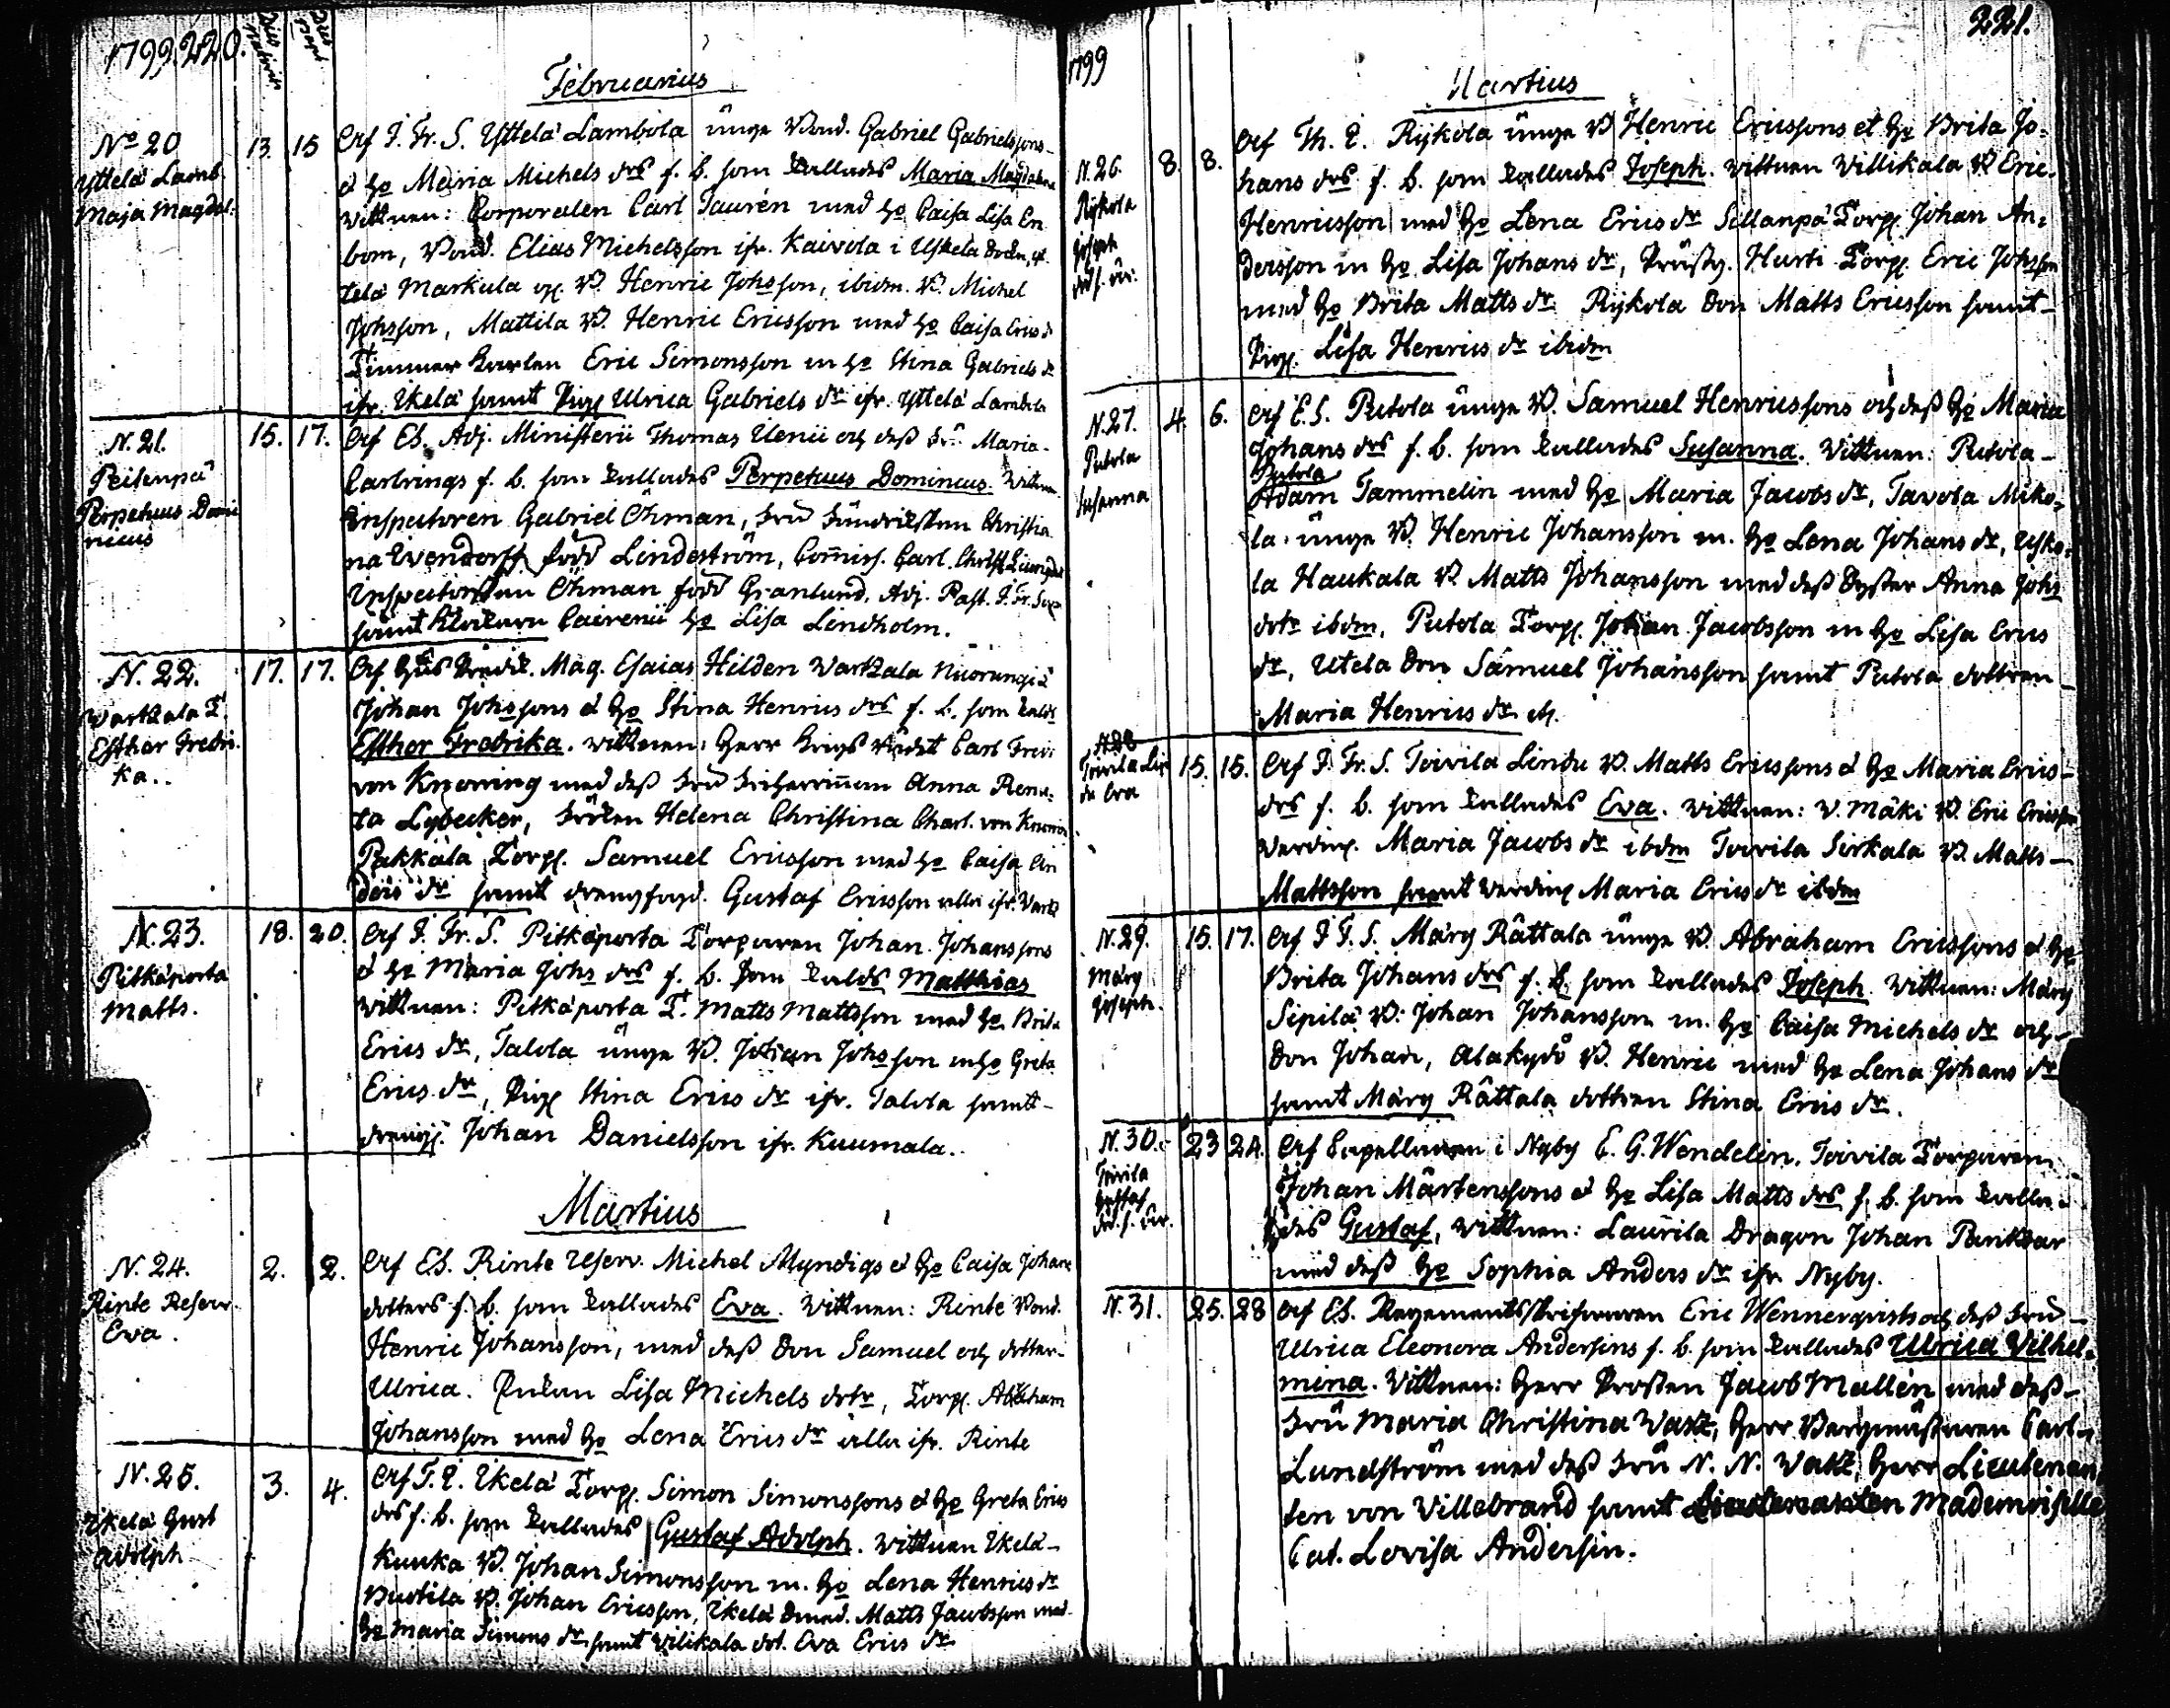 1799. 220.
Februarius
No 20
Yttelä Lamb.
Maja Magdal.
13. 15
Af I. Fr. S. Yttelä Lambola unge Bond. Gabriel Gabrielssons
et ho Maria Michels drs f. b. som kallades Maria Magdalena
Wittnen: Corporalen Carl Taurén med ho Caisa Lisa En
bom, Bond. Elias Michelsson ifr. Kaivola i Uskela
telä Markula B. Henric Johsson, ibidm. B. Michel
Johsson, Mattila B. Henric Ericsson med ho Caisa Erics d
Timmer Karlen Eric Simonsson m ho Stina Gabriels dr
ifr. Ikelä samt Pig Ulrica Gabriels dr ifr. Yttelä Lambola
N. 21.
Peitenpä
Perpetuus Domi
nicus
15. 17.
Af Es. Adj. Ministerii Thomas Uenii och dess Fru Maria
Carlrings f. b. som kallades Perpetuus Dominicus. Wittnen
Inspectoren Gabriel Öhman, Fru Christia
na Evendorff född Lindeström, Commiss. Carl
Inspectorskan Öhman född Granlund, Adj. Past. I. Fr.
samt Klockaren Cairenii ho Lisa Lindholm.
N. 22.
Wartzala T.
Esther Fredri
ka..
17. 17.
Af Mag. Esaias Hilden Wartzala
Johan Johssons et ho Stina Henrics drs f. b. som kalds
Esther Fredrika. Wittnen: Herr Krigs Rådet Carl Fredr
von Knorring med dess Fru Friherrinnan Anna Rena
ta Lybecker, Fröken Helena Christina Charl. von Knorring
Pakkala Torp. Samuel Ericsson med ho Caisa An
ders dr samt drengfogd. Gustaf Ericsson alla ifr. Wartz
N. 23.
Pitkäporta
Matts.
18. 20.
Af I. Fr. S. Pitkäporta Torparen Johan Johanssons
et ho Maria Johs drs f. b. som kalds Matthias
Wittnen: Pitkäporta T. Matts Mattsson med ho Brita
Erics dr, Talola unge B. Johan Johsson m ho Greta
Erics dr, Pig Stina Erics dr ifr. Talola samt
dreng. Johan Danielsson ifr. Kuumala.
Martius
N. 24.
Rinte Reserv
Eva.
2. 2.
Af Es. Rinte Reserv. Michel Myndigs et ho Caisa Johans
dotters f. b. som kallades Eva. Wittnen: Rinte Bond.
Henric Johansson, med dess Son Samuel och dotter
Ulrica. Enkan Lisa Michels dotr, Torp. Abraham
Johansson med ho Lena Erics dr alla ifr. Rinte
N. 25.
Ikelä Gust
Adolph
3. 4.
Af T. E. Ikelä Torp. Simon Simonssons et ho Greta Erics
drs f. b. som kallades Gustaf Adolph. Wittnen Ikelä
Kuuka B. Johan Simonsson m. ho Lena Henrics dr
B. Johan Ericsson, Ikelä Matts Jacobsson med
ho Maria Simons dr samt Wilikala dot. Eva Erics dr
1799
221.
Martius
N. 26.
Rijkola
Joseph
8. 8.
Af Th. E. Rijkola unge B Henric Ericssons et ho Brita Jo
hans drs f. b. som kallades Joseph. Wittnen Willikala B Eric
Henricsson med ho Lena Erics dr Sillanpä Torp. Johan An
dersson m ho Lisa Johans dr, Prästg. Hurti Torp. Eric Johsson
med ho Brita Matts dr Rijkola Son Matts Ericsson samt
Pig. Lisa Henrics dr ibidm
N. 27.
Putola
Susanna
4. 6.
Af E. S. Putola unge B. Samuel Henricssons och dess ho Maria
Johans drs f. b. som kallades Susanna. Wittnen: Putola
Putola
Adam Tammelin med ho Maria Jacobs dr, Tavola Miko
la unge B. Henric Johansson m. ho Lena Johans dr, Uske
la Haukala B. Matts Johansson med dess Syster Anna Johs
dotr ibdm, Putola Torp. Johan Jacobsson m ho Lisa Erics
dr, Utela Son Samuel Johansson samt Putola dottren
Maria Henrics dr
N. 28
Toivila Lin
du Eva
15. 15.
Af I. Fr. S. Toivila Lindu B. Matts Ericssons et ho Maria Erics
drs f. b. som kallades Eva. Wittnen: W. Mäki B. Eric Ericsson
Werdin. Maria Jacobs dr ibdm Toivila Sirkala B. Matts
Mattsson samt Werdin Maria Erics dr ibdm
N. 29.
Märy
Joseph.
15. 17.
Af I F. S. Märy Rättala unge B. Abraham Ericssons et ho
Brita Johans drs f. b. som kallades Joseph. Wittnen: Märy
Sipilä B. Johan Johansson m. ho Caisa Michels dr och
Son Johan, Alakydö B. Henric med ho Lena Johans dr
samt Märy Rättala dottren Stina Erics dr.
N. 30.
Toivila
Gustaf
23 24.
Af Capellanen i Nyby E. G. Wendelin. Toivila Torparen
Johan Mårtenssons et ho Lisa Matts drs f. b. som kalla
des Gustaf, Wittnen: Laurila Dragon Johan Pankkar
med dess ho Sophia Anders dr ifr Nyby.
N. 31.
25. 28
Af Es. Regements Skrifvaren Eric Wennerqvists och dess Fru
Ulrica Eleonora Andersins f. b. som kallades Ulrica Vilhel
mina. Wittnen: Herr Prosten Jacob Mallén med dess
Fru Maria Christina Watz, Herr Bergmästaren Carl
Lundström med dess Fru N. N. Watz, Herr Lieutenan
ten von Villebrand samt Lieutenanten Mademoiselle
Cat. Lovisa Andersin.